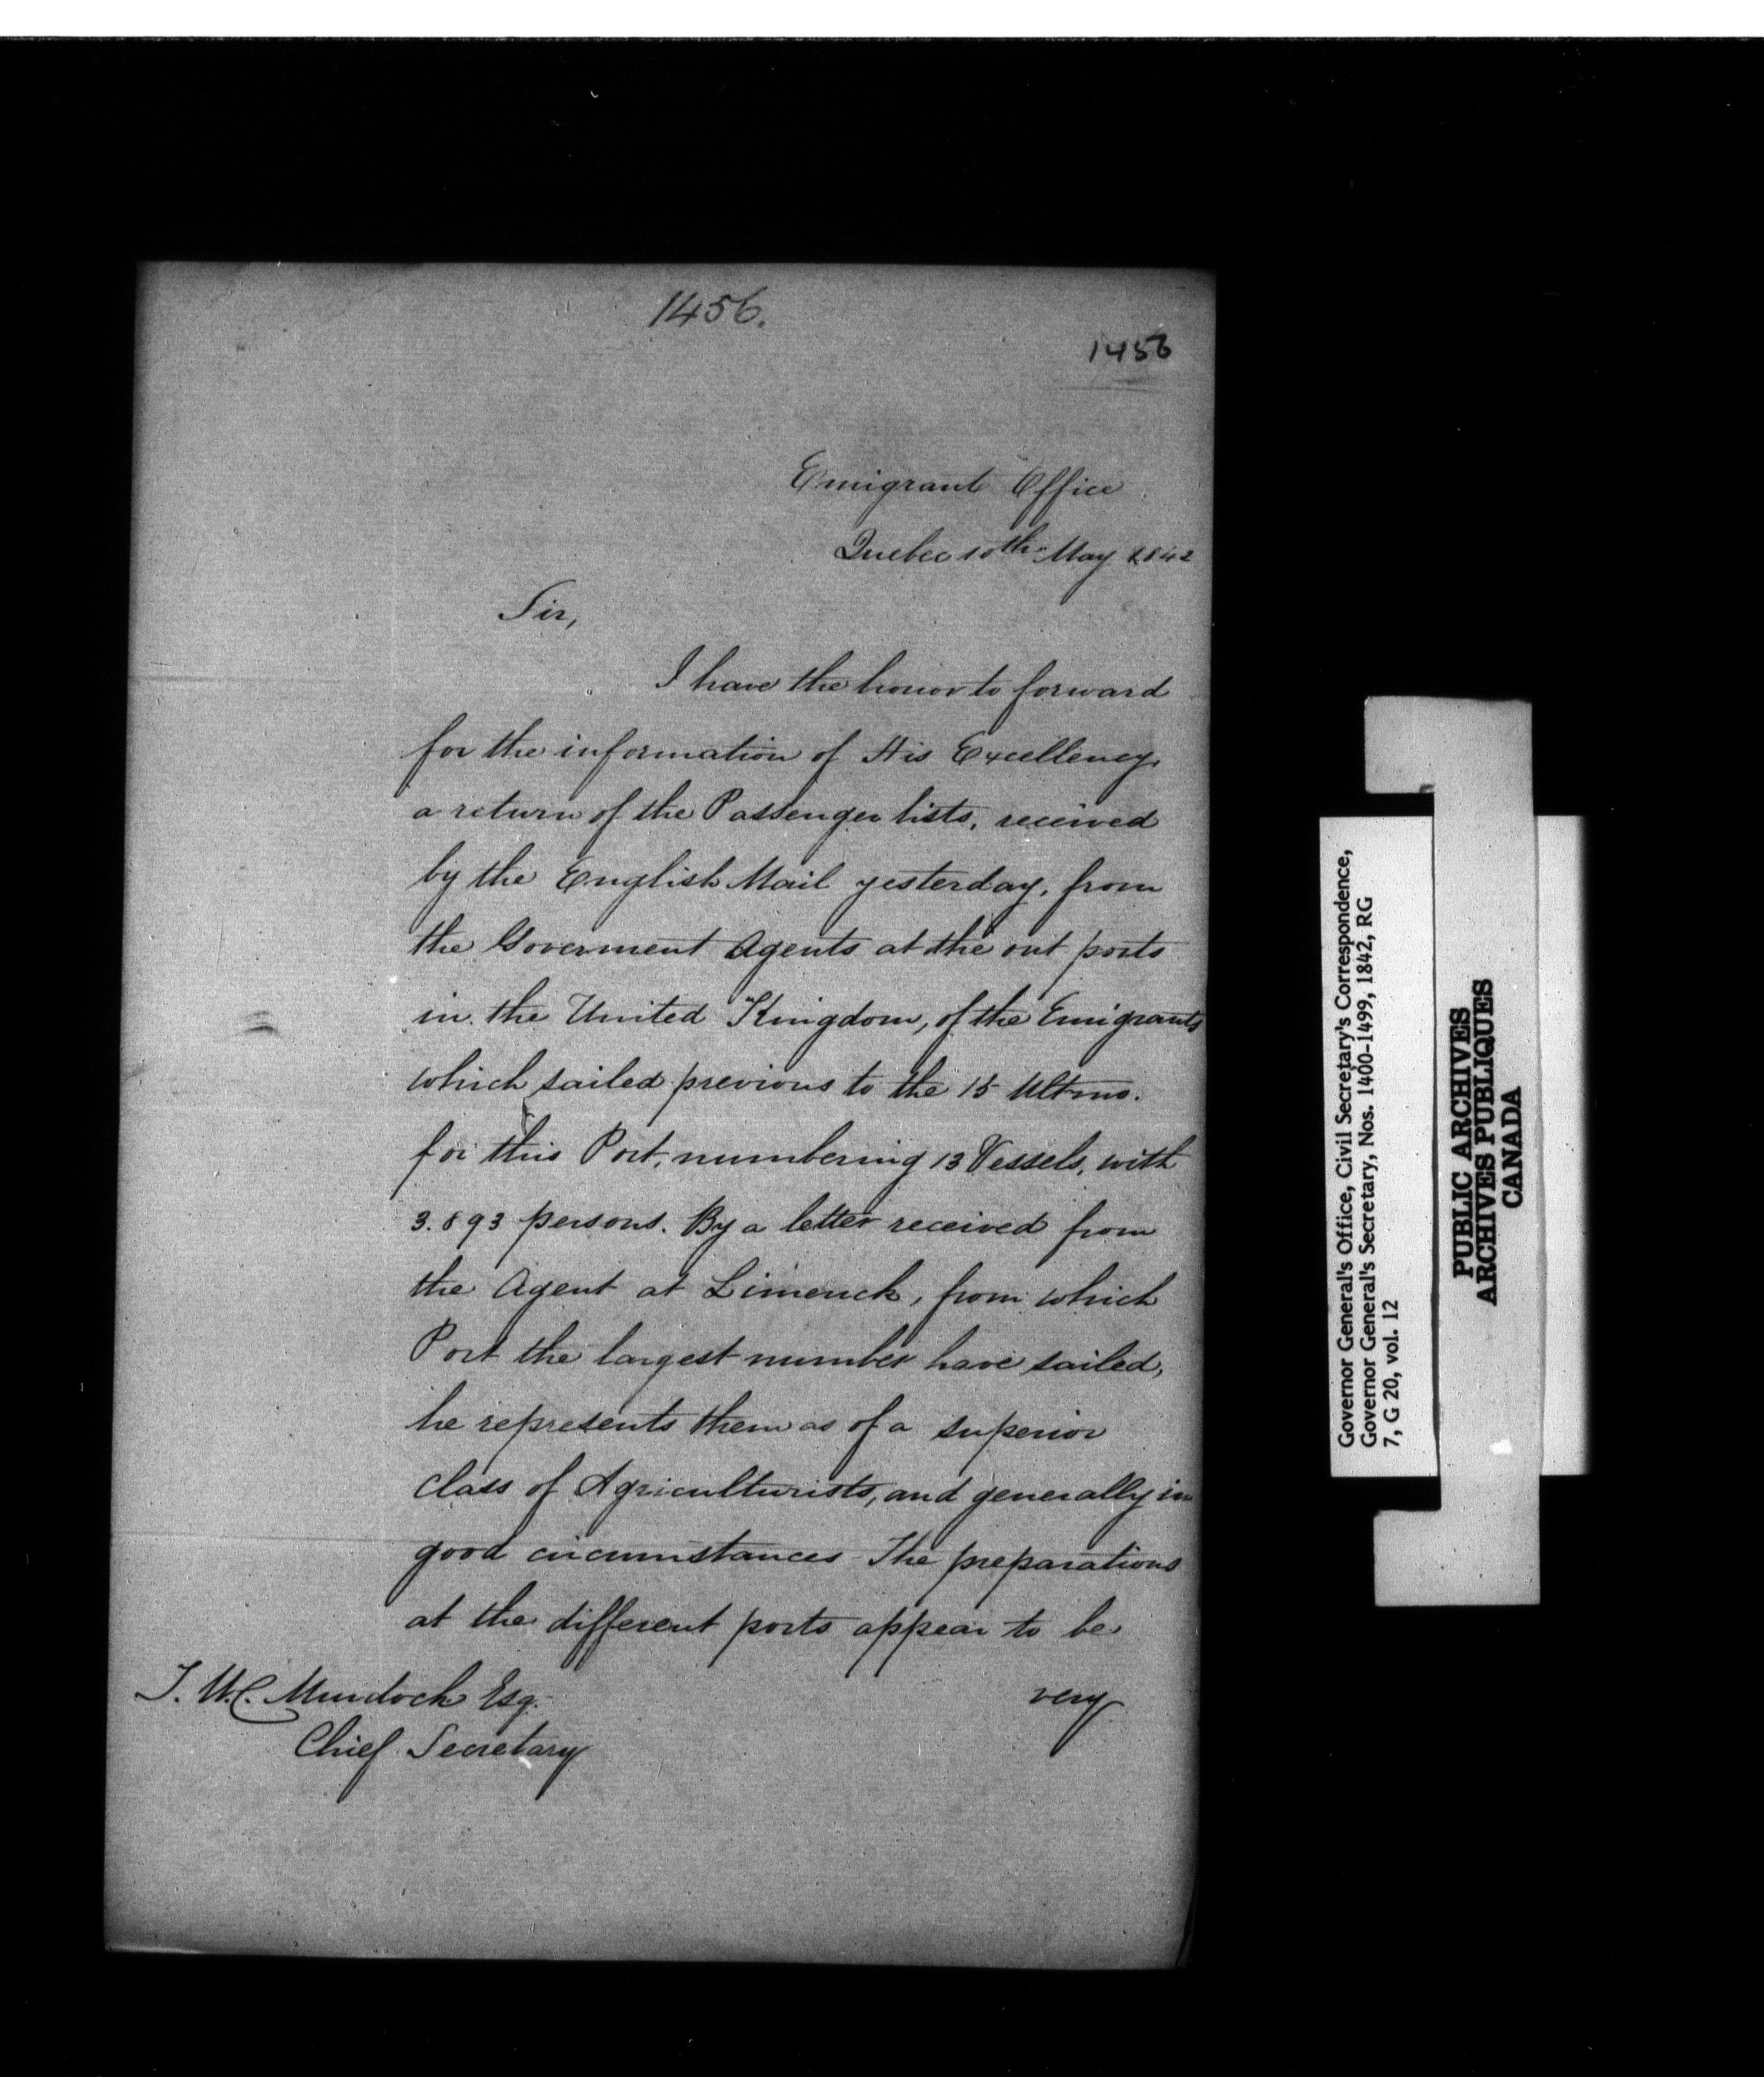 1456.
1456
Emigrant Office
Quebec 10th May 1842
Sir,
I have the honor to forward
for the information of His Excellency
a return of the Passenger lists, received
by the English Mail yesterday, from
the Goverment Agents at the out ports
in the United Kingdom, of the Emigrants
which sailed previous to the 15 Ultmo.
for this Port, numbering 13 Vessels, with
3.893 persons. By a letter received from
the Agent at Limerick, from which
Port the largest number have sailed,
he represents them as of a superior
class of Agriculturists, and generally in
good circumstances The preparations
at the different ports appear to be
very
T. W. C. Murdoch Esq.
Chief Secretary
Governor General's Office, Civil Secretary's Correspondence,
Governor General's Secretary, Nos. 1400-1499, 1842, RG
7, G 20, vol. 12
PUBLIC ARCHIVES
ARCHIVES PUBLIQUES
CANADA